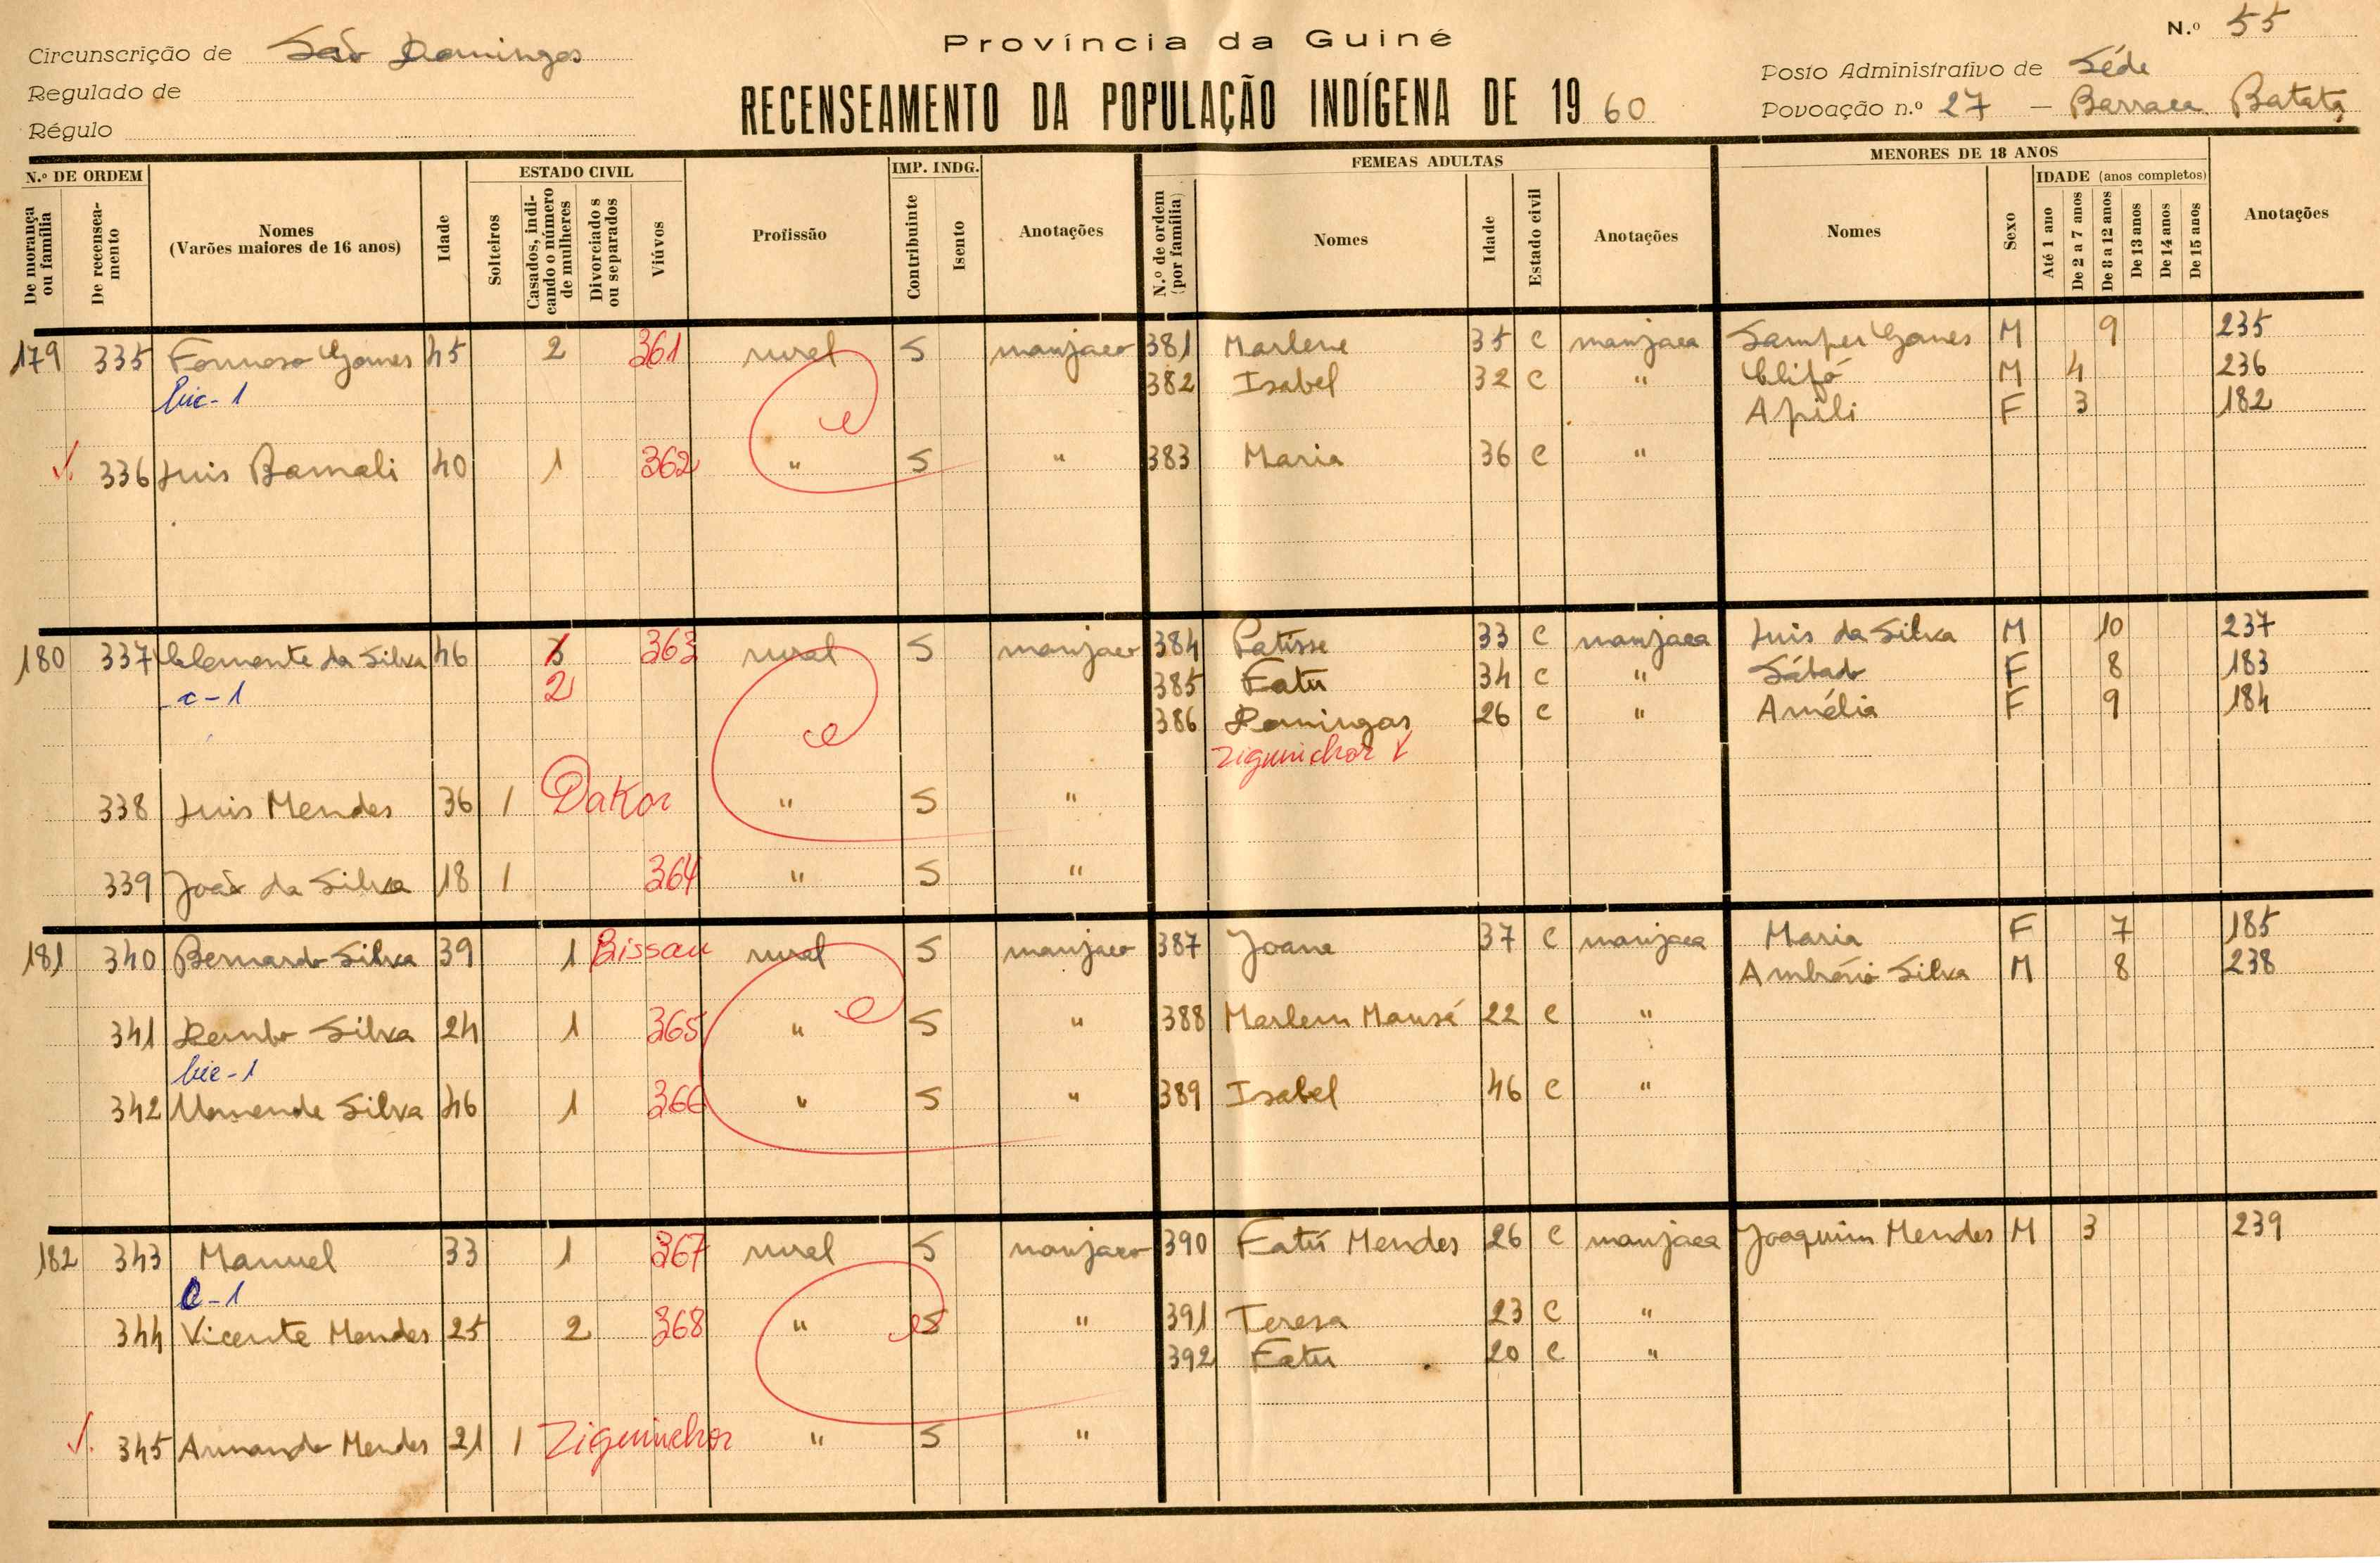 Província da Guiné
N.º 55
Circunscrição de São Domingos
Regulado de
Régulo
RECENSEAMENTO DA POPULAÇÃO INDÍGENA DE 1960
Posto Administrativo de Séde
Povoação n.º 27 — Barraca Batata
N.º DE ORDEM
De morança ou família
De recenseamento
Nomes (Varões maiores de 16 anos)
Idade
ESTADO CIVIL
Solteiros
Casados, indicando o número de mulheres
Divorciados ou separados
Viúvos
Profissão
IMP. INDG.
Contribuinte
Isento
Anotações
FEMEAS ADULTAS
N.º de ordem (por família)
Nomes
Idade
Estado civil
Anotações
MENORES DE 18 ANOS
Nomes
Sexo
IDADE (anos completos)
Até 1 ano
De 2 a 7 anos
De 8 a 12 anos
De 13 anos
De 14 anos
De 15 anos
Anotações
179 335 Formoso Gomes 45 2 361 rural S manjaco 381 Marlene 35 C manjaca Samper Gomes M 9 235
382 Isabel 32 C " Clifó M 4 236
Apili F 3 182
336 Luis Bamali 40 1 362 " S " 383 Maria 36 C "
180 337 Clemente da Silva 46 3 363 rural S manjaco 384 Patisse 33 C manjaca Luis da Silva M 10 237
c-1 2 385 Fatu 34 C " Sábado F 8 183
386 Domingas 26 C " Amélia F 9 184
Ziguinchor
338 Luis Mendes 36 1 Dakor " S "
339 João da Silva 18 1 364 " S "
181 340 Bernardo Silva 39 1 Bissau rural S manjaco 387 Joana 37 C manjaca Maria F 7 185
Ambrósio Silva M 8 238
341 Dembo Silva 24 1 365 " S " 388 Marlem Mansé 22 C "
342 Umende Silva 46 1 366 " S " 389 Isabel 46 C "
182 343 Manuel 33 1 367 rural S manjaco 390 Fatú Mendes 26 C manjaca Joaquim Mendes M 3 239
C-1
344 Vicente Mendes 25 2 368 " S " 391 Teresa 23 C "
392 Fatu 20 C "
345 Armando Mendes 21 1 Ziguinchor " S "